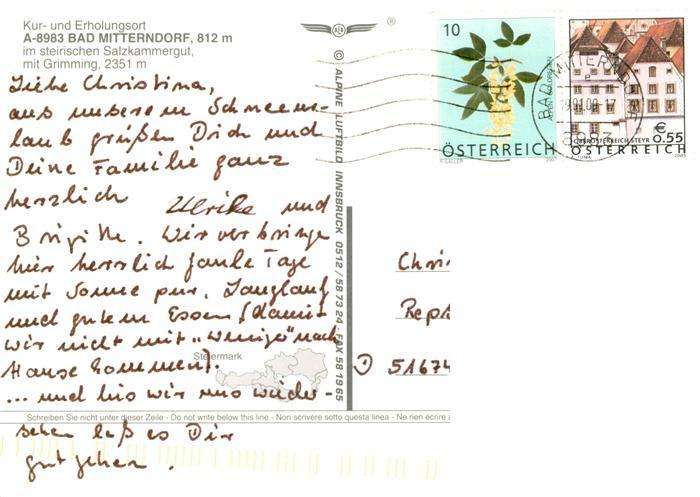 Kur- und Erholungsort
A-8983 BAD MITTERNDORF, 812 m
im steirischen Salzkammergut,
mit Grimming, 2351 m
Liebe Christina,
aus unserem Schneeur-
laub grüßen Dich und
Deine Familie ganz
herzlich Ulrike und
Brigitte. Wir verbringen
hier herrlich faule Tage
mit Sonne pur, Langlauf
und gutem Essen (damit
wir nicht mit "wenige" nach
Hause kommen).
... und bis wir uns wieder-
sehen laß es Dir
gut gehen.
Steiermark
Schreiben Sie nicht unter dieser Zeile - Do not write below this line - Non scrivere sotto questa linea - Ne rien écrire
© ALPINE LUFTBILD INNSBRUCK 0512/58 73 24 · FAX 58 19 65
®
10
ÖSTERREICH
2007
BAD MITTERNDORF
19.01.08-17
8983
€ 0.55
STEYR
ÖSTERREICH
2005
Chri
Rep
51674